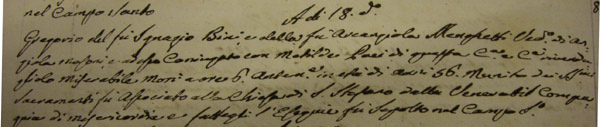 nel Campo Santo
A di 18. do.
Gregorio del fù Ignazio Bini e della fù Arcangiola Menghetti Ved.o di
e adesso Coniugato con Matilde di questa C.a e C.
Miserabile Morì a ore 6. Anten.e in età di anni 56. Munito dei SS.mi
Sacramenti fù Associato alla Chiesa di S. Stefano dalla Venerabil Compa
gnia di Misericordia e fattegli l'Esequie fù Sepolto nel Campo S.o
8